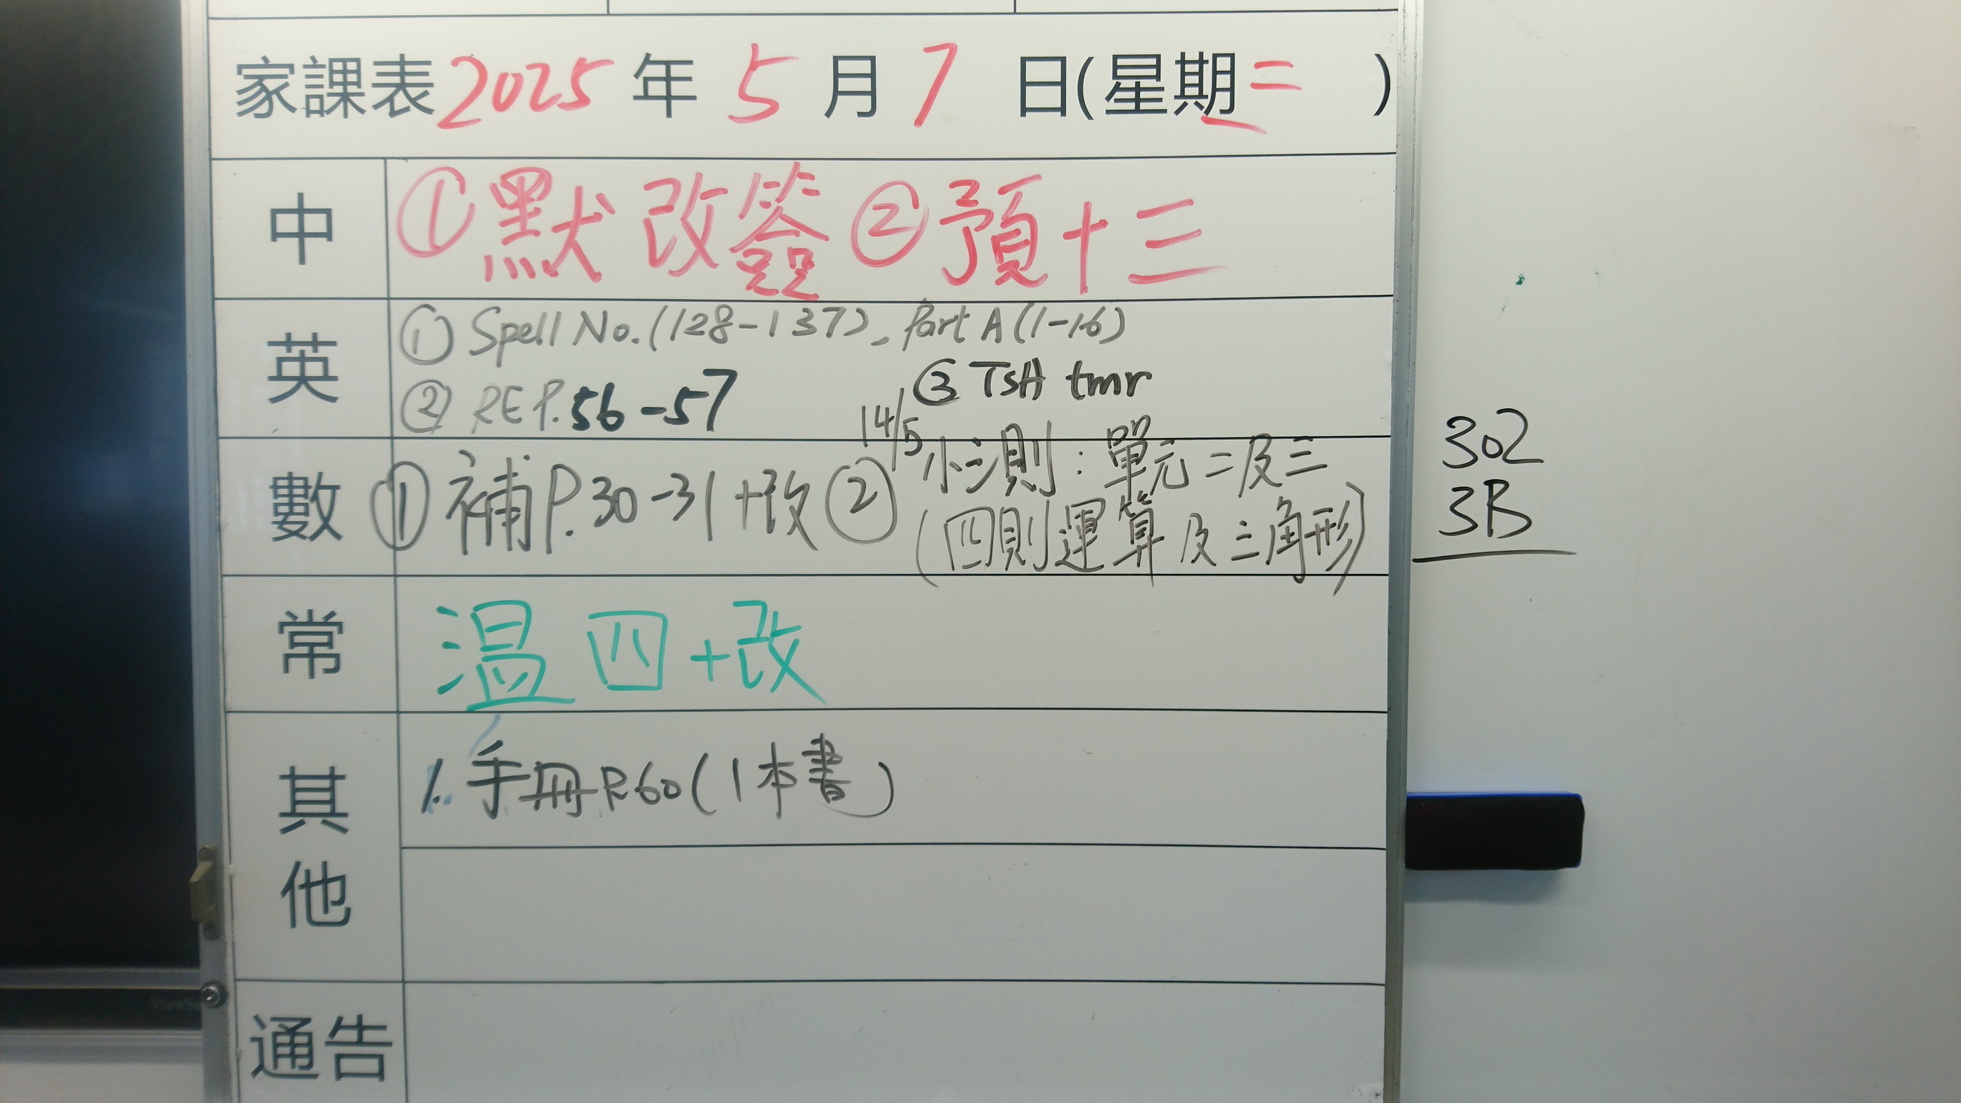 家課表 2025 年 5 月 7 日(星期三 )
中 ①默改簽 ②預十三
英 ① Spell No.(128-137), Part A (1-16)
② RE P.56-57 ③ TSA tmr
數 ① 補P.30-31+改 ② 14/5 小測:單元二及三
(四則運算及三角形)
常 温四+改
其他 1. 手冊R60(1本書)
通告
302
3B